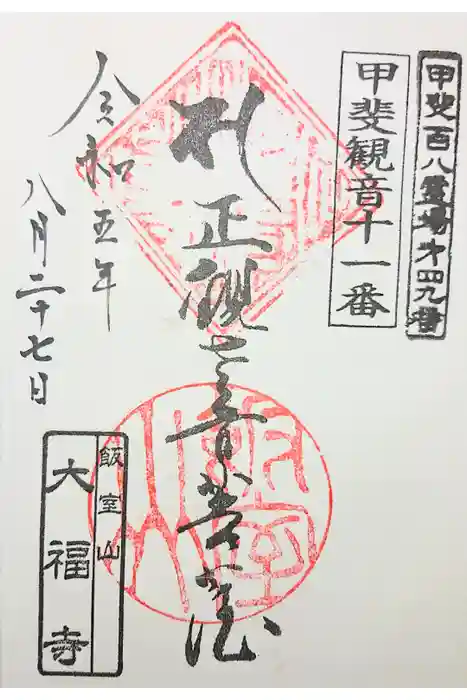 甲斐百八霊場第四九番
甲斐観音十一番
札 正観世音菩薩
令和五年
八月二十七日
飯室山
大福寺